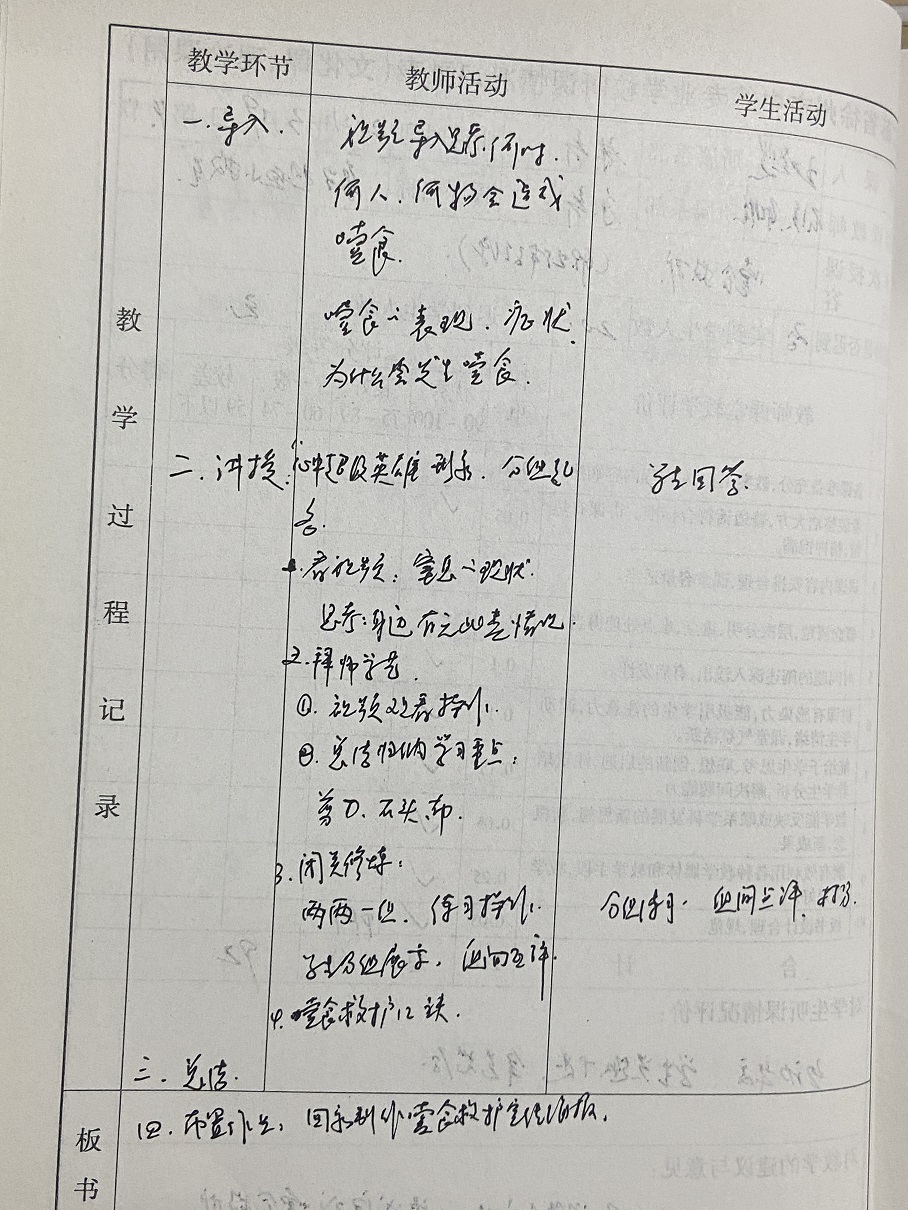 教学环节 教师活动 学生活动
一.导入. 视频导入思考:何时.
何人.何物会造成
噎食.
噎食的表现、症状.
为什么会发生噎食.
二.讲授: 超级英雄 分组起
名. 学生回答.
1.看视频:窒息的现状.
思考:身边有无此类情况.
2.拜师学艺.
①.视频观看操作.
②.总结归纳学习重点:
剪刀.石头.布.
3.闭关修炼:
两两一组.练习操作. 分组练习.组间点评.打分.
学生分组展示,组间互评.
4.噎食救护口诀.
三.总结.
教学过程记录
四.布置作业:回家制作噎食救护宣传海报.
板书